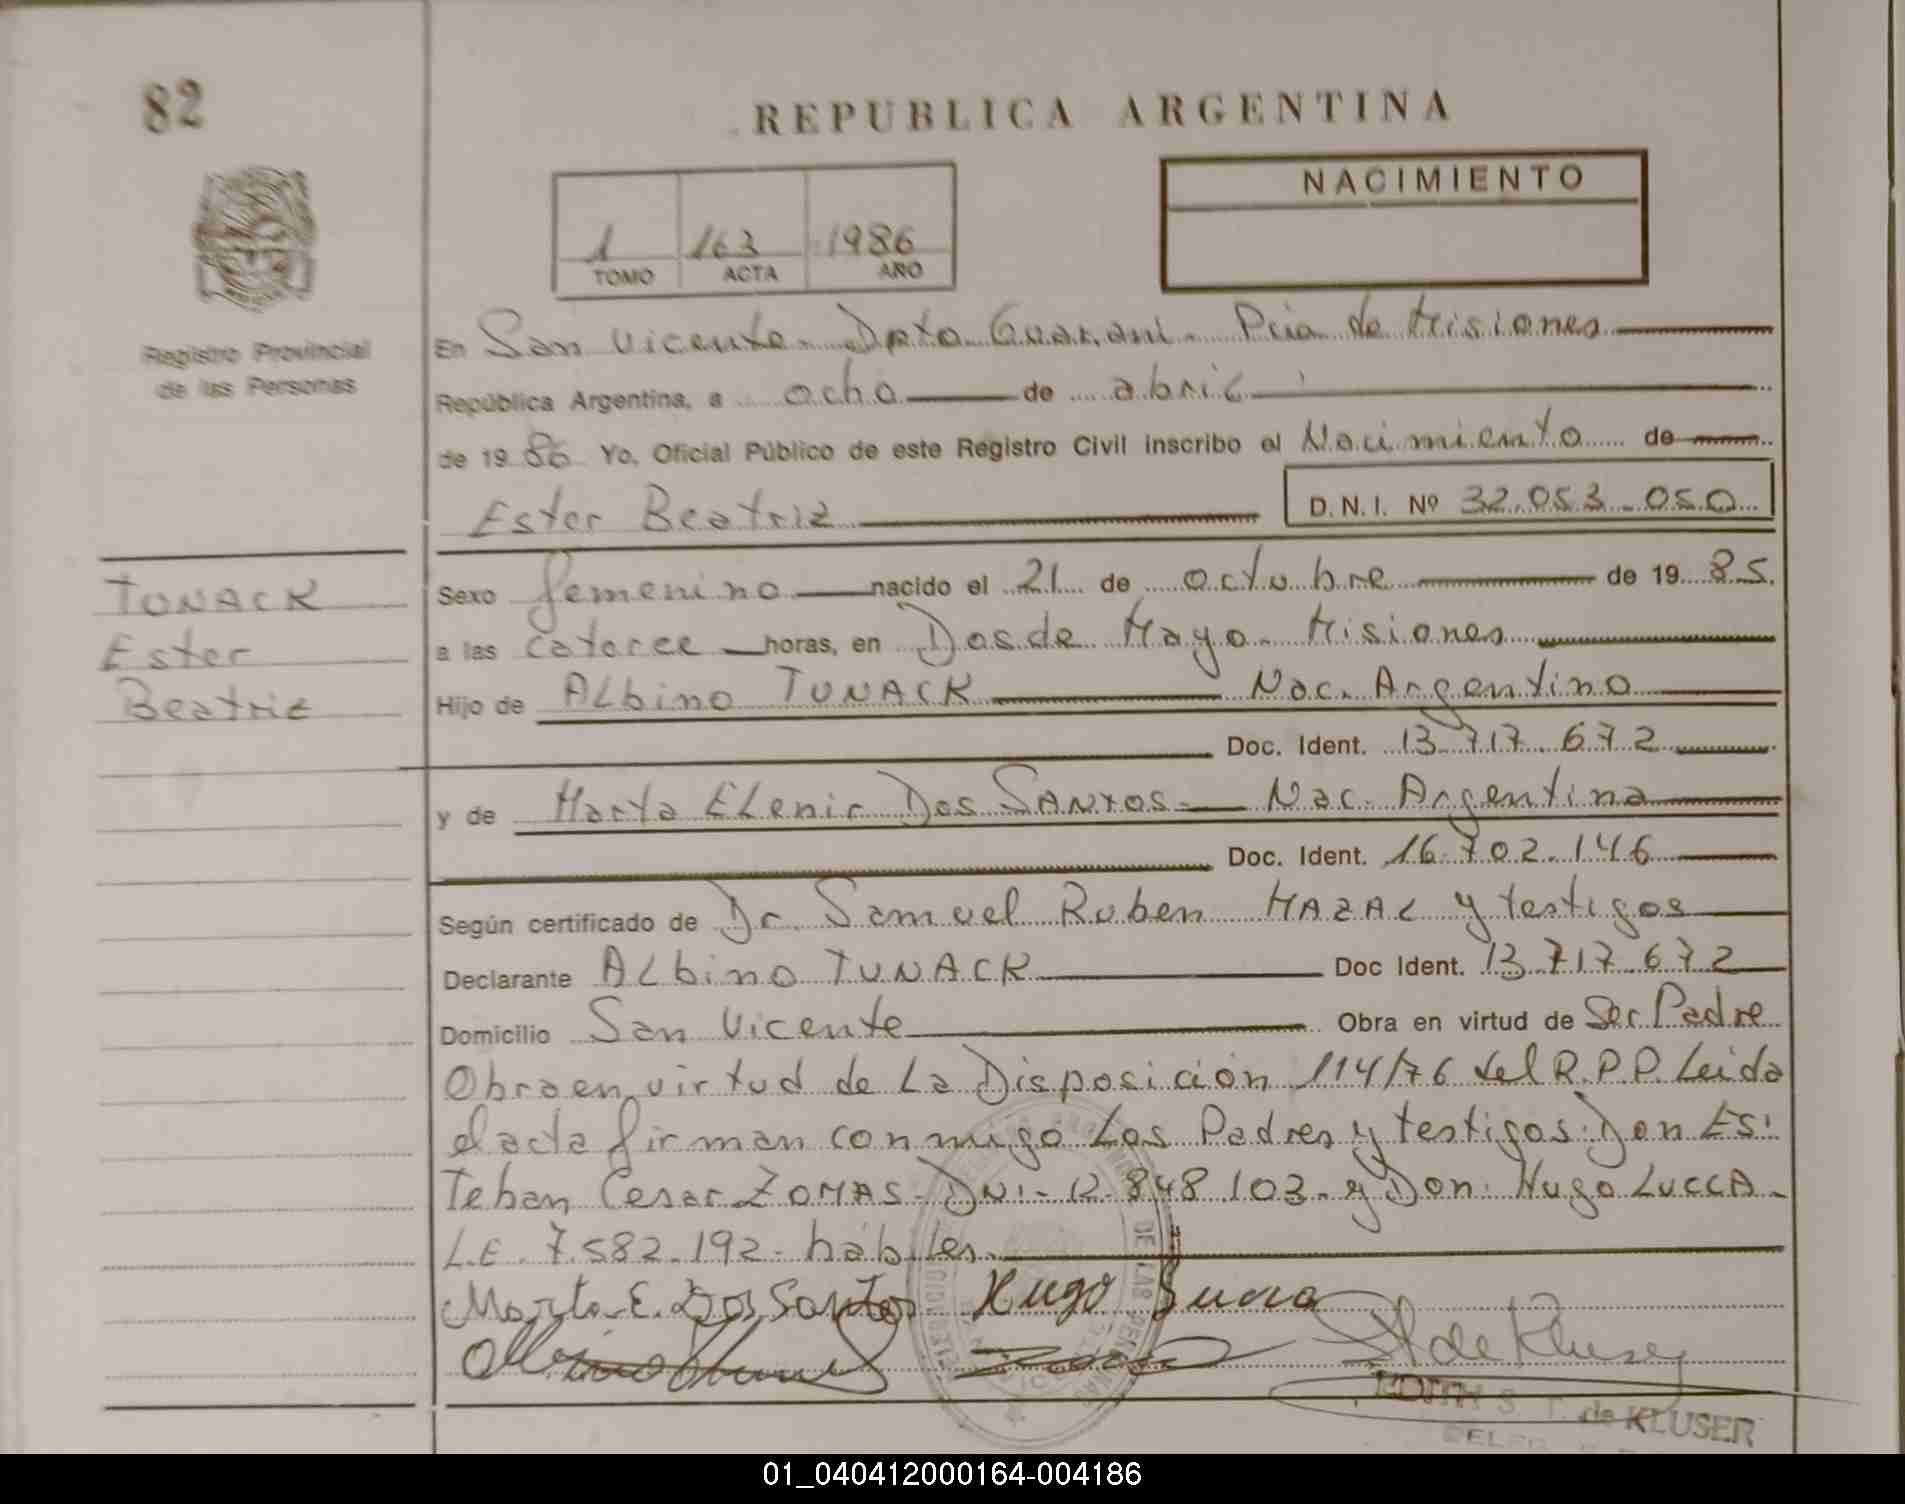 82
REPUBLICA ARGENTINA
NACIMIENTO
1 163 1986
TOMO ACTA AÑO
Registro Provincial
de las Personas
En San Vicente - Dpto Guarani - Pcia de Misiones
República Argentina, a ocho de abril
de 1986 Yo, Oficial Público de este Registro Civil inscribo el Nacimiento de
Ester Beatriz D. N. I. Nº 32.053.050
TUNACK
Ester
Beatriz
Sexo femenino nacido el 21 de octubre de 1985.
a las catorce horas, en Dos de Mayo - Misiones
Hijo de Albino TUNACK Nac. Argentino
Doc. Ident. 13.717.672
y de Marta Elenir Dos Santos - Nac. Argentina
Doc. Ident. 16.702.146
Según certificado de Dr. Samuel Ruben MAZAL y testigos
Declarante Albino TUNACK Doc Ident. 13.717.672
Domicilio San Vicente Obra en virtud de Ser Padre
Obra en virtud de la Disposición 114/76 del R.P.P. Leida
el acta firman conmigo los Padres y testigos: Don Es-
teban Cesar ZOMAS - DNI - 12.848.103 - y Don Hugo LUCCA -
L.E. 7.582.192 - hábiles.
Marta E. Dos Santos Hugo Lucca
de Kluser
EDITH S. T. de KLUSER
01_040412000164-004186